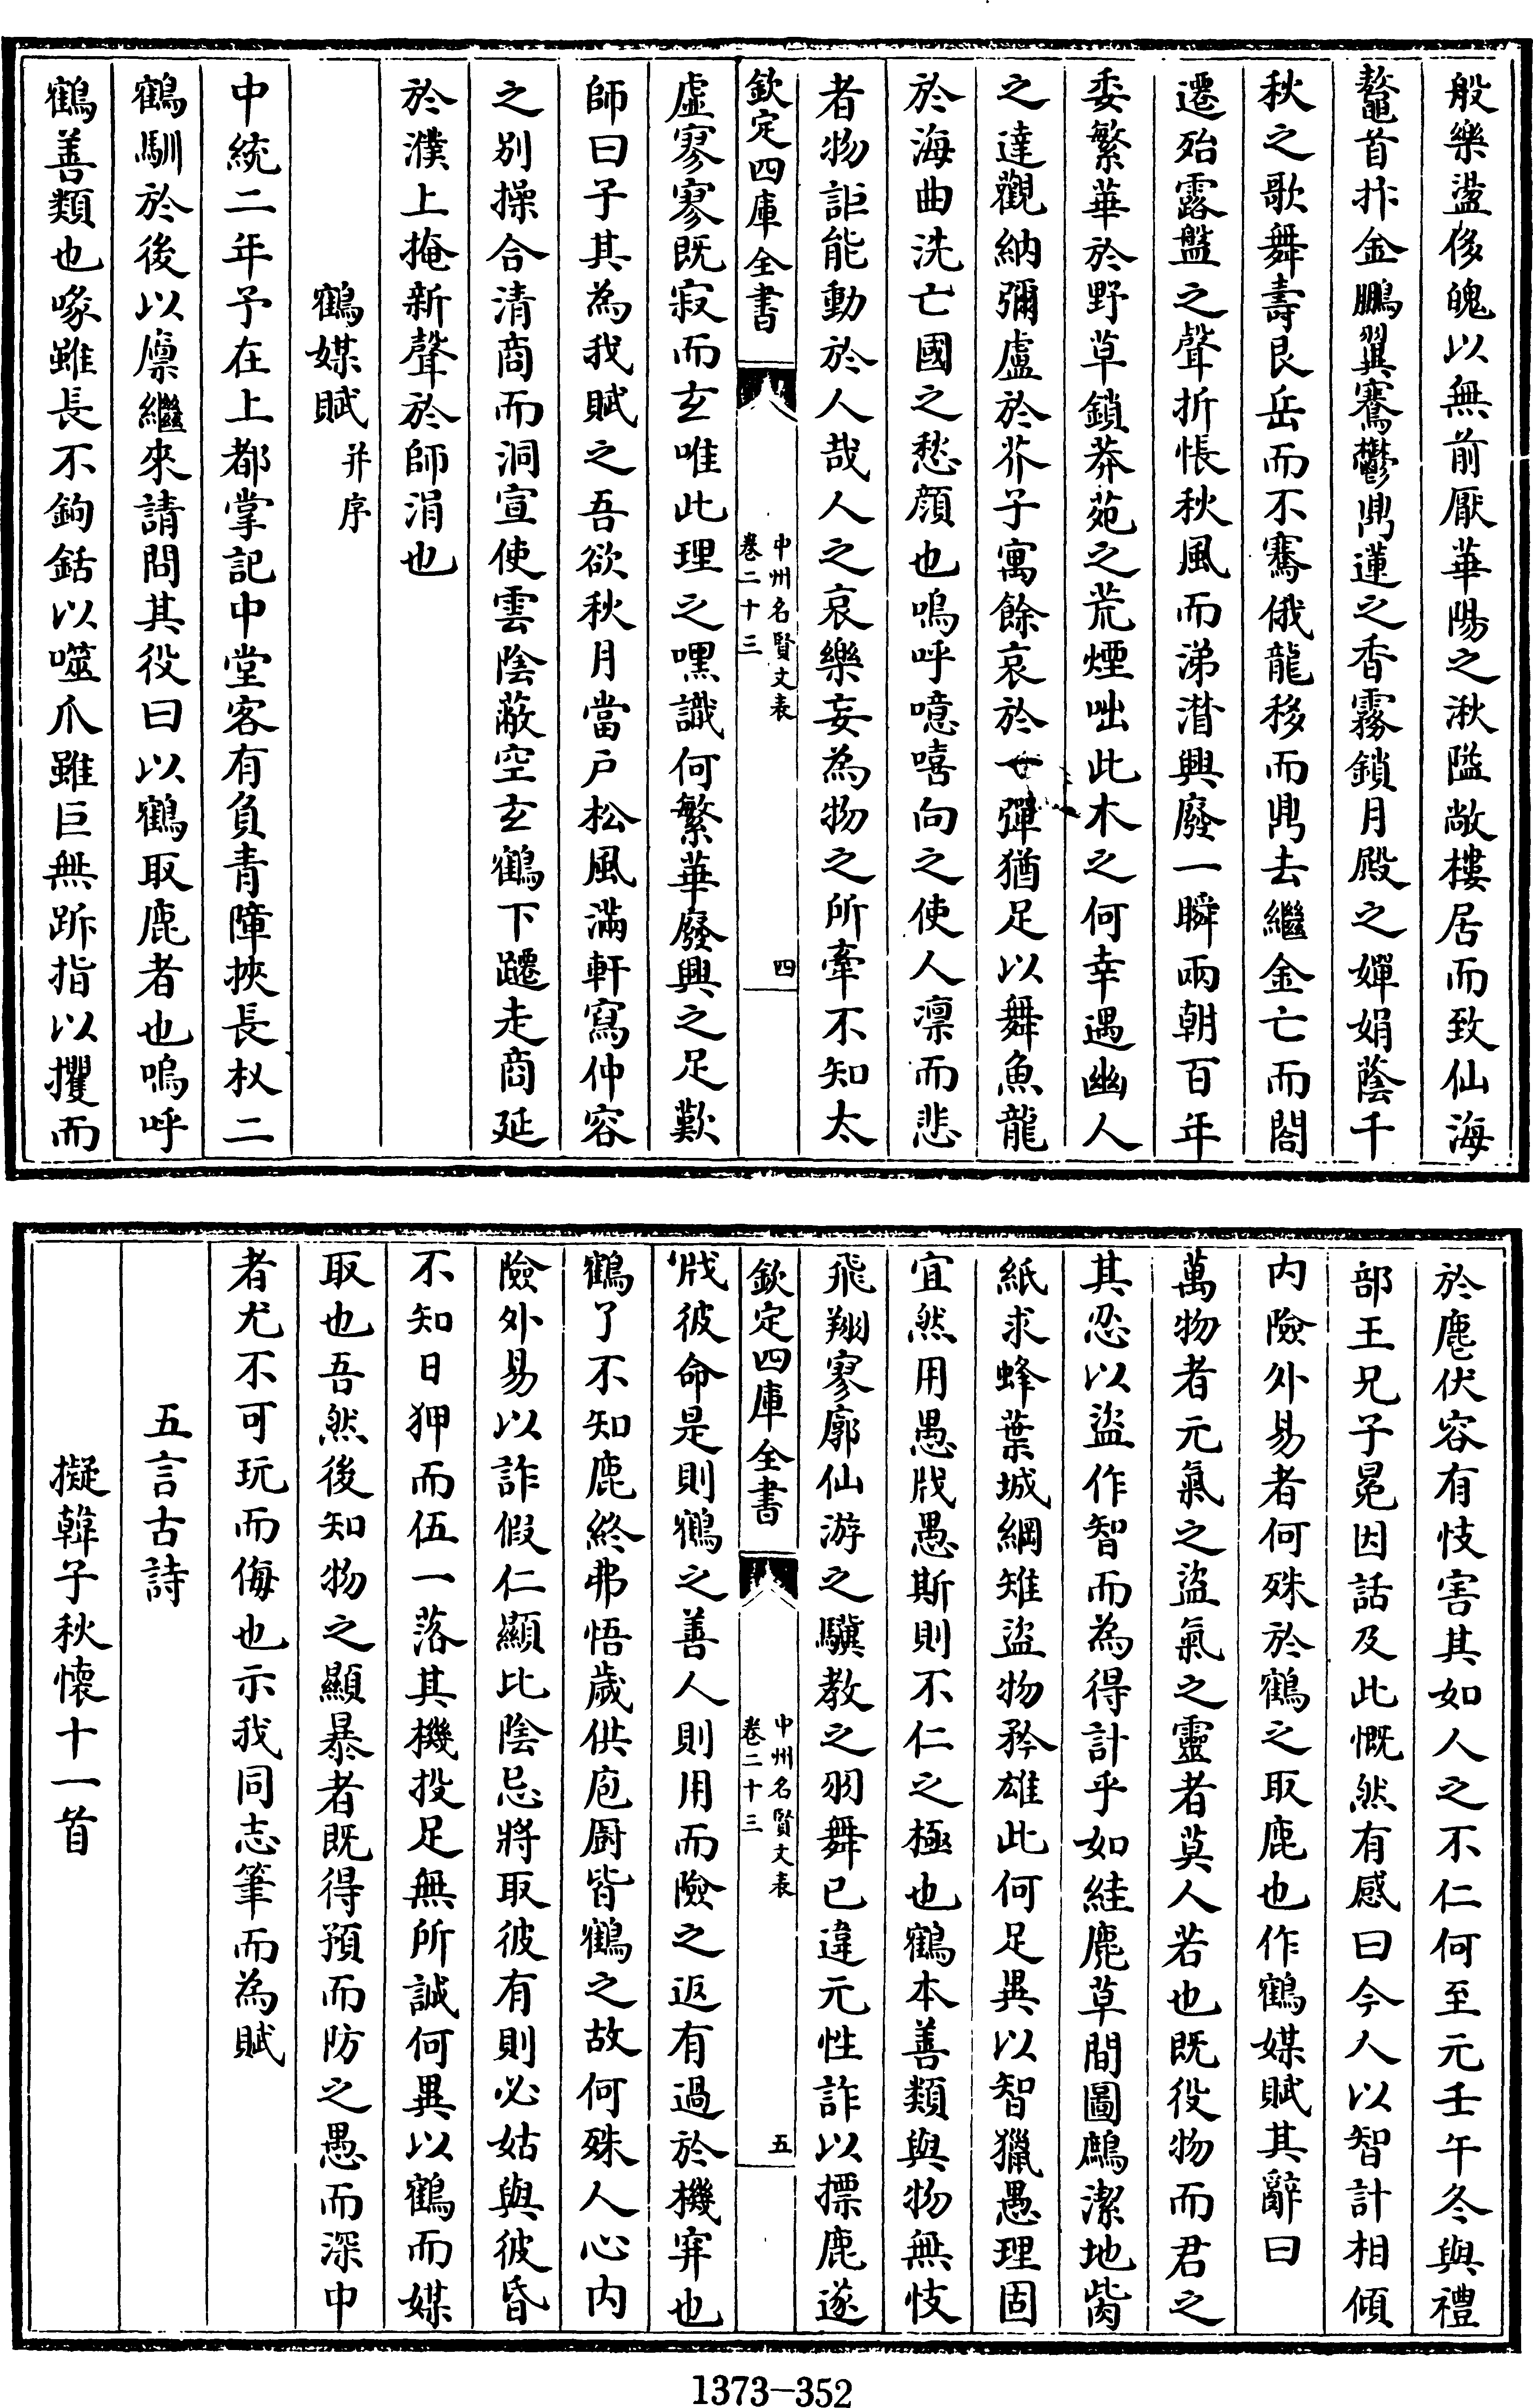 般樂盪侈魄以無前厭華陽之湫隘敞樓居而致仙海
鼇首抃金鵬翼騫鬱鼎蓮之香霧鎖月殿之嬋娟蔭千
秋之歌舞壽艮岳而不騫俄龍移而鼎去繼金亡而閤
遷殆露盤之聲折悵秋風而涕潸興廢一瞬兩朝百年
委繁華於野草鎖莽苑之荒煙咄此木之何幸遇幽人
之達觀納彌盧於芥子寓餘哀於一彈猶足以舞魚龍
於海曲洗亡國之愁顔也嗚呼噫嘻向之使人凛而悲
者物詎能動於人哉人之哀樂妄為物之所牽不知太
欽定四庫全書
中州名賢文表
卷二十三
四
虛寥寥既寂而玄唯此理之嘿識何繁華廢興之足歎
師曰子其為我賦之吾欲秋月當户松風滿軒寫仲容
之别操合清商而洞宣使雲陰蔽空玄鶴下躚走商延
於濮上掩新聲於師涓也
鶴媒賦并序
中統二年予在上都掌記中堂客有負青障挾長杈二
鶴馴於後以廪繼來請問其役曰以鶴取鹿者也嗚呼
鶴善類也喙雖長不鉤銛以噬爪雖巨無跅指以攫而
於麀伏容有忮害其如人之不仁何至元壬午冬與禮
部王兄子冕因話及此慨然有感曰今人以智計相傾
内險外易者何殊於鶴之取鹿也作鶴媒賦其辭曰
萬物者元氣之盜氣之靈者莫人若也既役物而君之
其忍以盜作智而為得計乎如絓麂草間圖鷓潔地㡀
紙求蜂葉城綱雉盜物矜雄此何足異以智獵愚理固
宜然用愚戕愚斯則不仁之極也鶴本善類與物無忮
飛翔寥廓仙游之驥教之羽舞已違元性詐以摽鹿遂
欽定四庫全書
中州名賢文表
卷二十三
五
戕彼命是則鶴之善人則用而險之返有過於機穽也
鶴了不知鹿終弗悟歲供庖厨皆鶴之故何殊人心内
險外易以詐假仁顯比陰忌將取彼有則必姑與彼昏
不知日狎而伍一落其機投足無所誠何異以鶴而媒
取也吾然後知物之顯暴者既得預而防之愚而深中
者尤不可玩而侮也示我同志筆而為賦
五言古詩
擬韓子秋懷十一首
1373-352